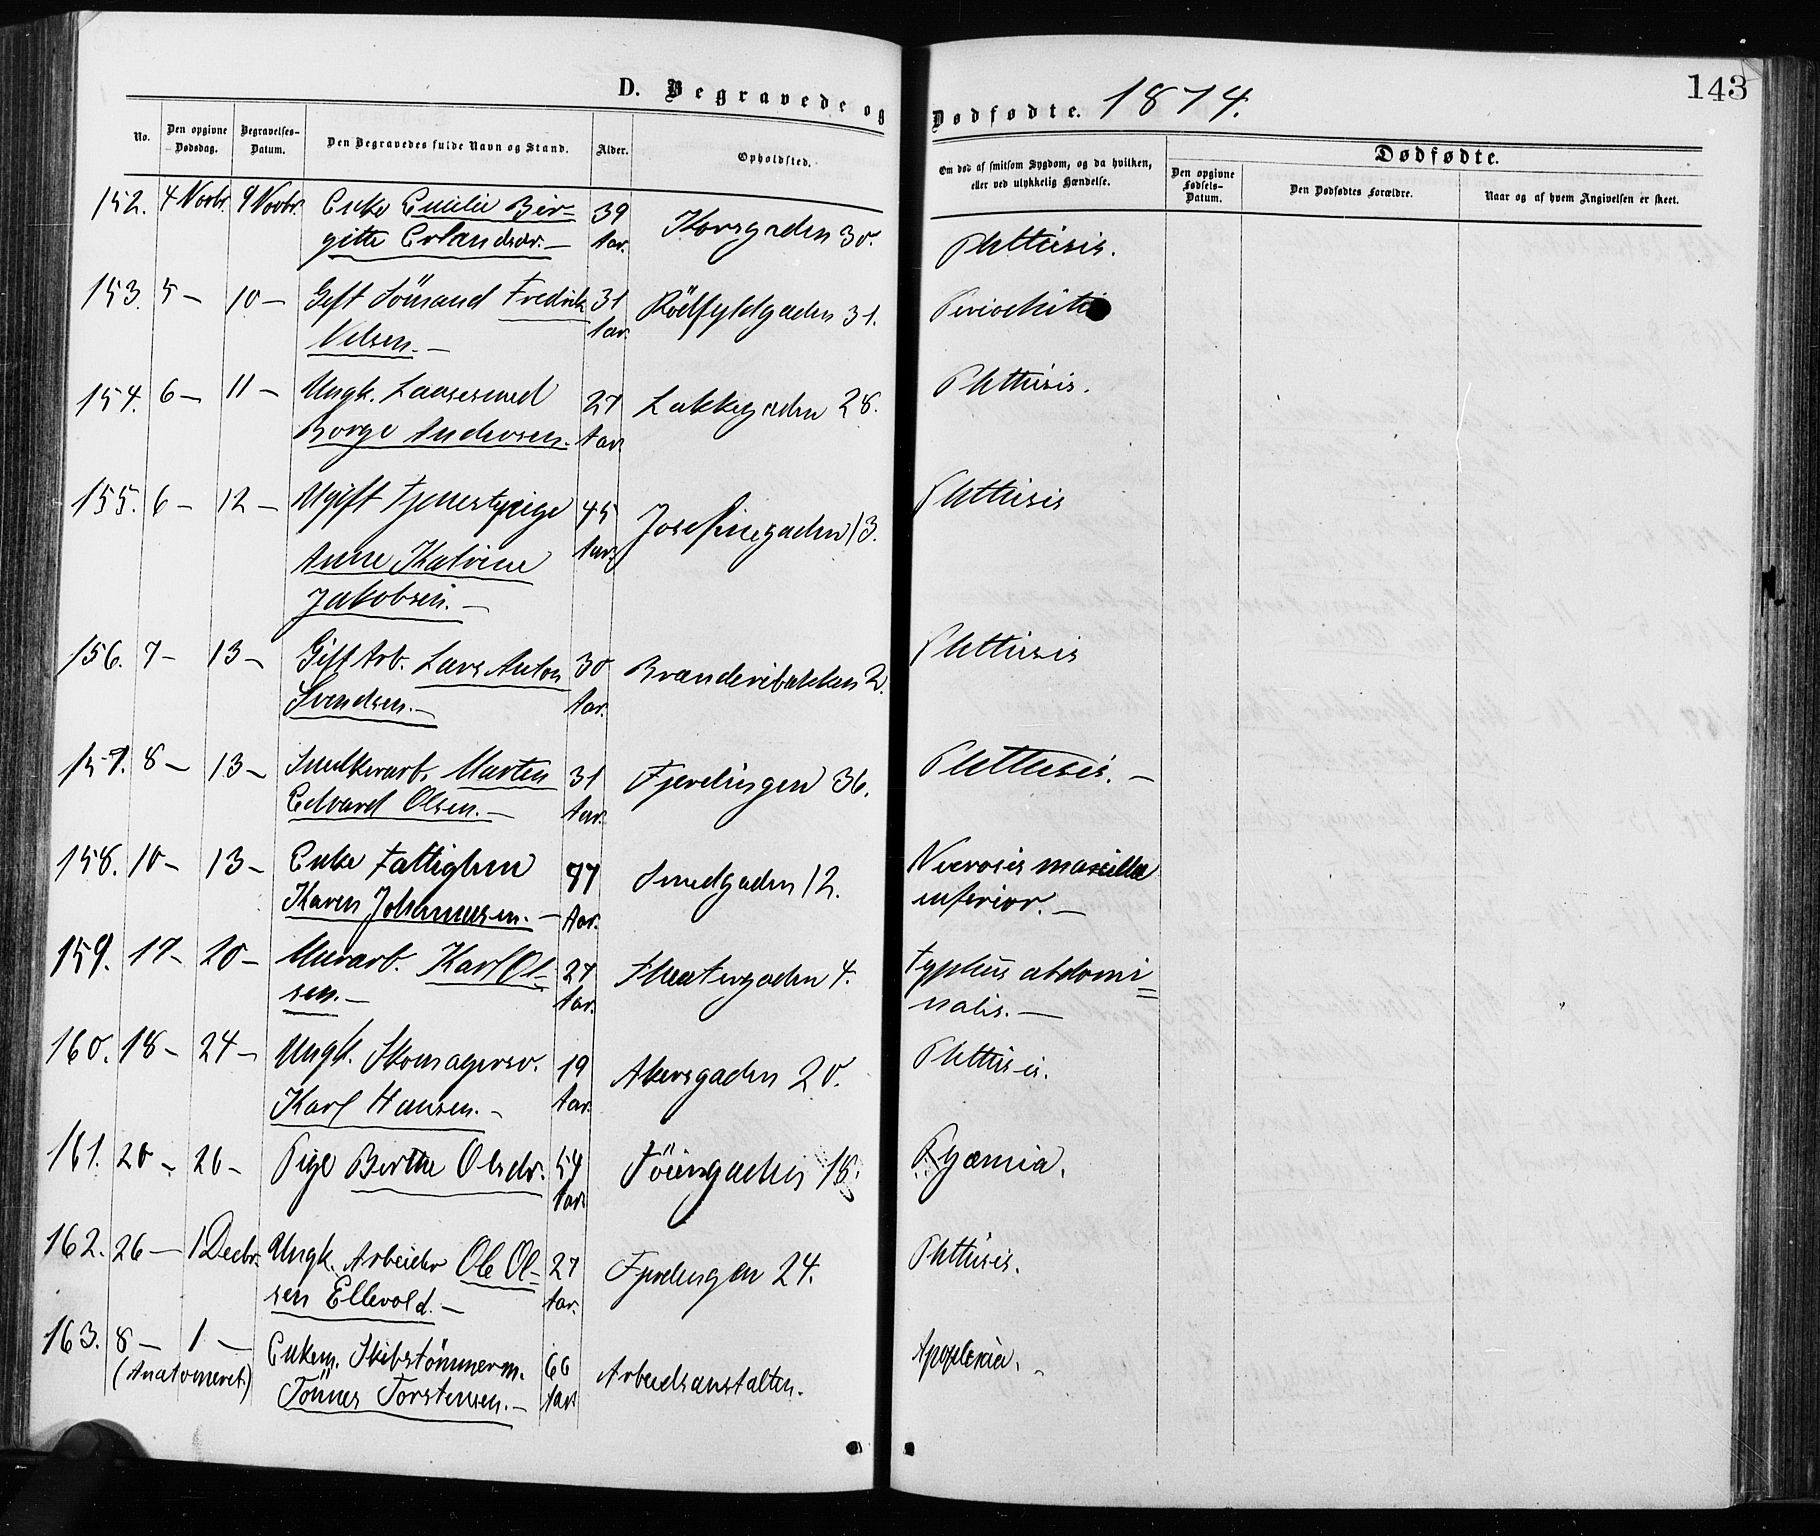 143
D. Begravede og Dødfødte. 1874.
No. | Den opgivne Dødsdag. | Begravelses-Datum. | Den Begravedes fulde Navn og Stand. | Alder. | Opholdsted. | Om død af smitsom Sygdom, og da hvilken, eller ved ulykkelig Hændelse. | Dødfødte. | Den opgivne Fødsels-Datum. | Den Dødfødtes Forældre. | Naar og af hvem Angivelsen er skeet.
152. 4 Novbr. 9 Novbr. Enke Emilie Bir- 39 Korsgaden 30. Phthisis.
gitte Erlandsdr. — Aar.
153. 5 — 10 — Gift Sömand Fredrik 31 Rödfyldgaden 31.
Nelsen. — Aar.
154. 6 — 11 — Ungk. Laasesmed 27 Lakkegaden 28. Phthisis.
Borge Andersen. Aar
155. 6 — 12 — Ugift Tjenestpige 45 Josefinegaden 13. Phthisis
Anne Katrine Aar
Jakobsen. —
156. 7 — 13 — Gift Arb. Lars Anton 30 Brænderibakken 2. Phthisis
Svendsen. — Aar.
157. 8 — 13 — Snedkerarb. Marten 31 Fjerdingen 36. Phthisis. —
Edvard Olsen. — Aar.
158. 10 — 13 — Enke Fattiglem Smedgaden 12. Necrosis maxilla
Karen Johannesen. — Aar. inferior. —
159. 17 — 20 — Murarb. Karl Ol- 27 Theatergaden 4. Typhus abdomi=
sen. — Aar. nalis. —
160. 18 — 24 — Ungk. Skomagersv. 19 Akersgaden 20. Phthisis.
Karl Hansen. — Aar.
161. 20 — 26 — Pige Berthe Olsdr. 54 Töiengaden 18. Pyæmia.
Aar
162. 26 — 1 Decbr. Ungk. Arbeider Ole Ol- 27 Fjerdingen 24. Phthisis.
sen Ellevold. — Aar.
163. 8 — 1 — Enkem. Skibstömmerm. 66 Arbeidsanstalten. Apoplexia. —
(Anatomeret) Tönnes Torstensen. — Aar